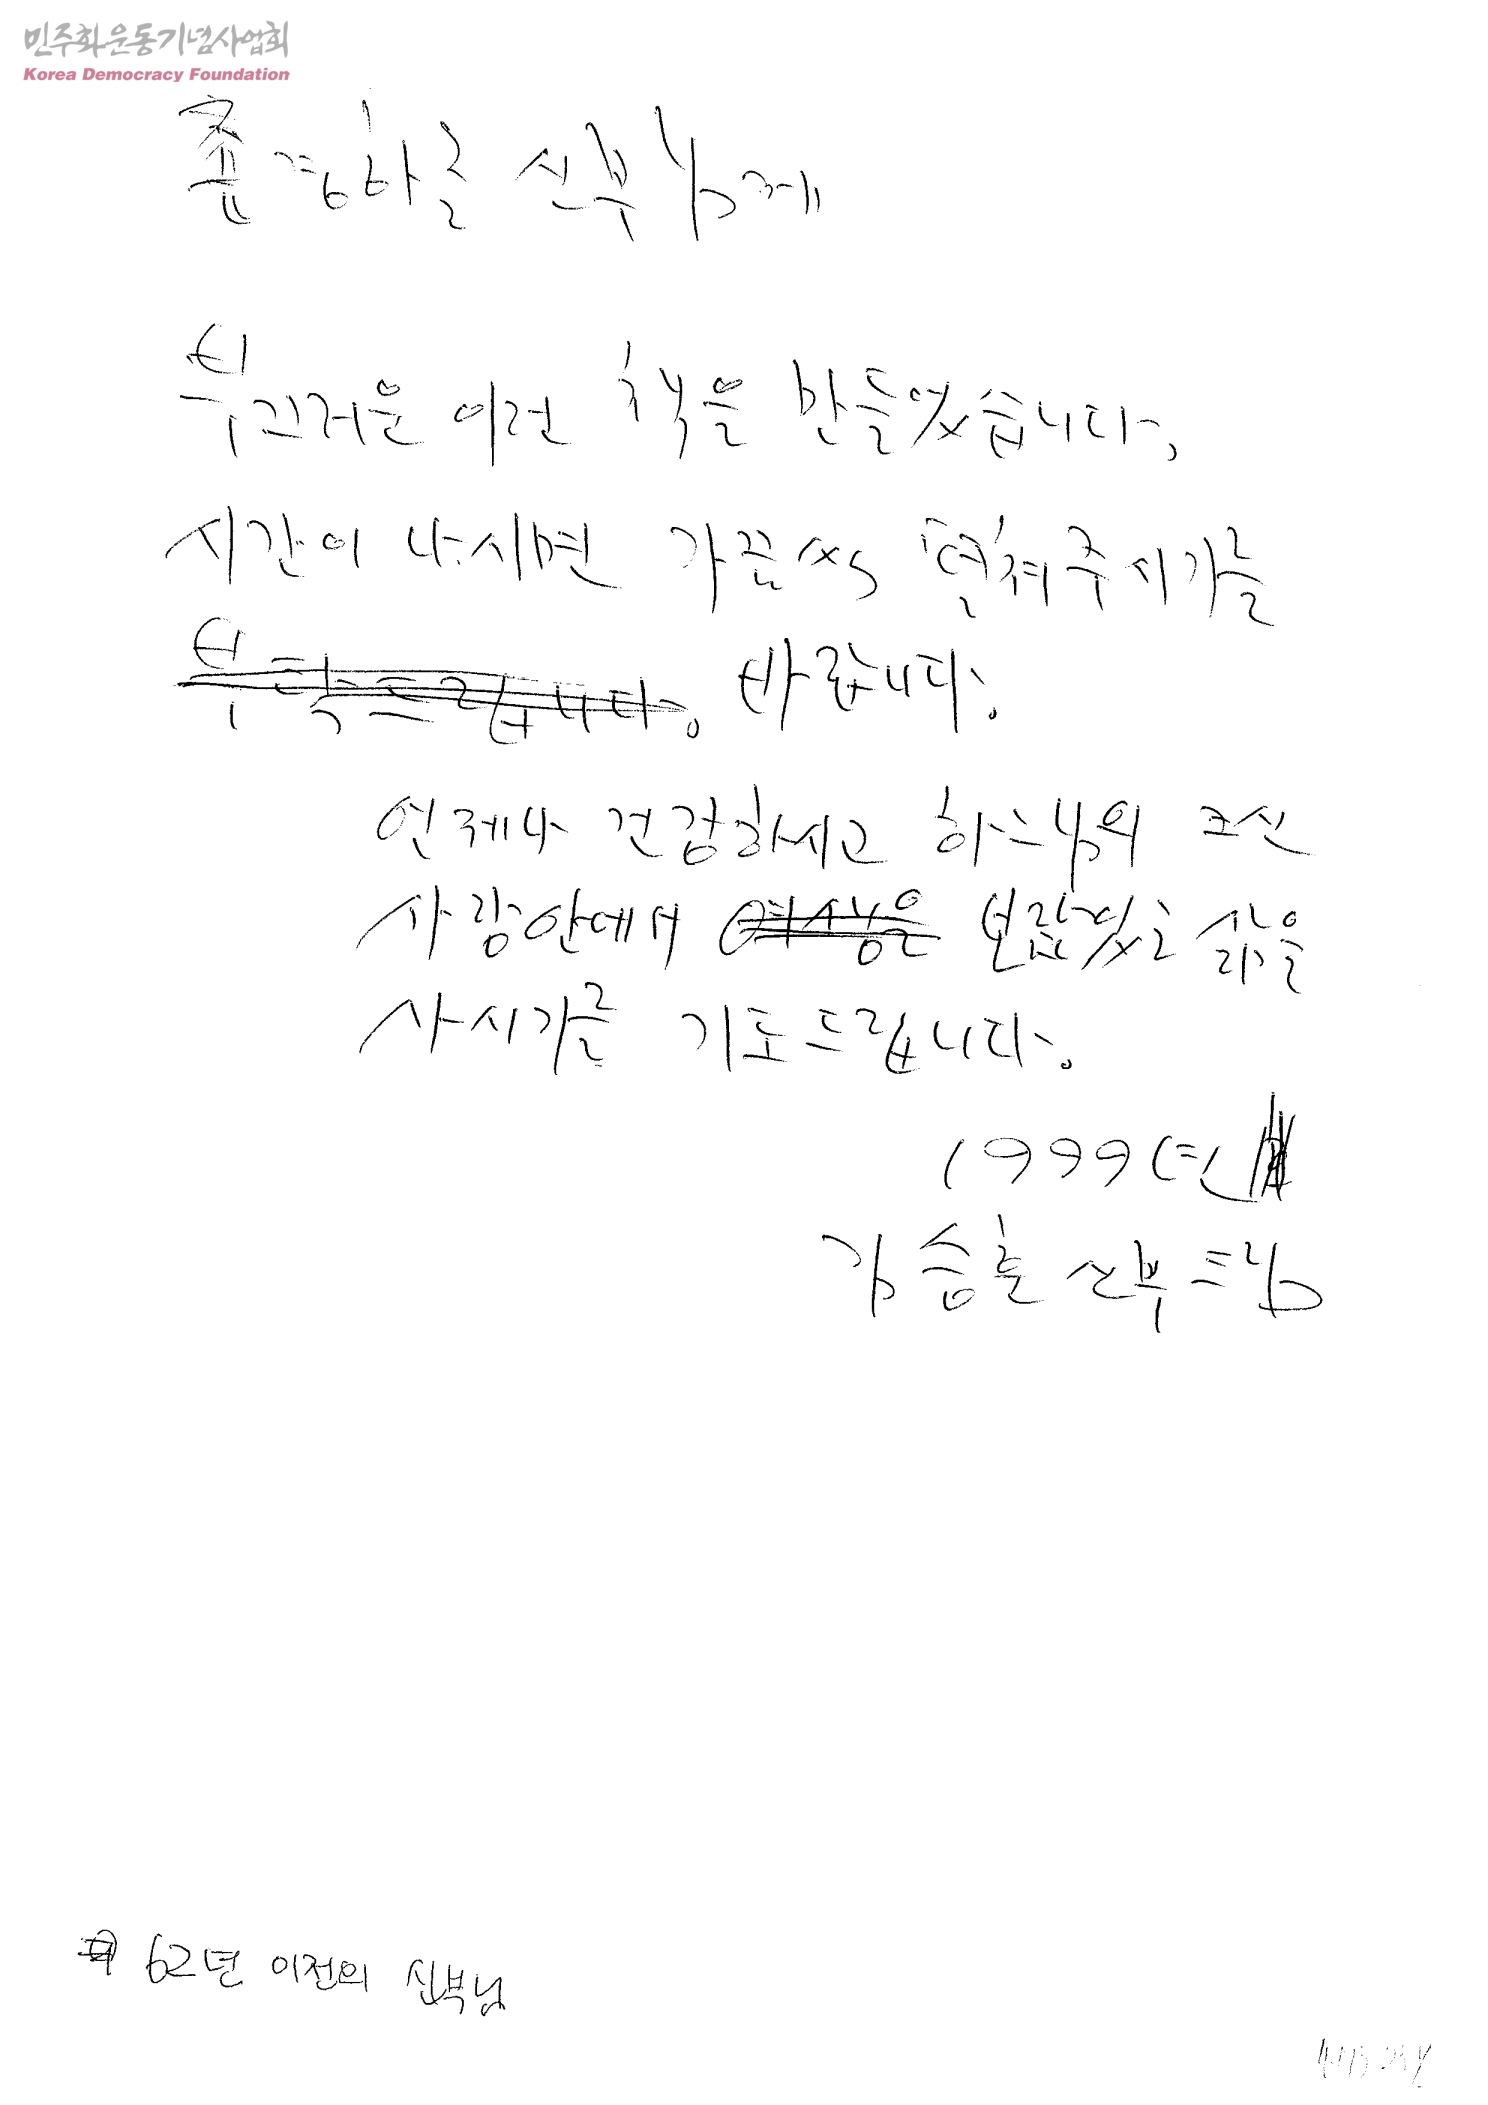 민주화운동기념사업회
Korea Democracy Foundation
존경하올 신부님께
부끄러운 이런 책을 만들었습니다.
시간이 나시면 가끔씩 펼쳐주시기를
부탁드립니다. 바랍니다.
언제나 건강하시고 하느님의 크신
사랑안에서 여생을 보람있는 삶을
사시기를 기도드립니다.
1999년
김승훈 신부 드림
62년 이전의 신부님